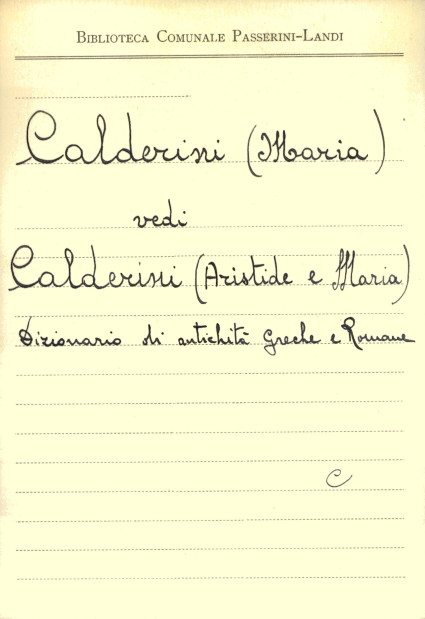 BIBLIOTECA COMUNALE PASSERINI-LANDI
Calderini (Maria)
vedi
Calderini (Aristide e Maria)
Dizionario di antichità Greche e Romane
C